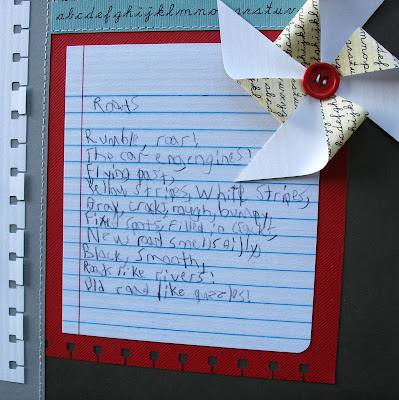 abcdefghijklmnopqrstuv
Roads
Rumble, roar!
The car engengines!
Flying past,
Yellow stripes, White stripes,
Gray cracks, rough, bumpy,
Fixed roads, filled in cracks,
New road smells oily,
Black, smooth,
Roads like rivers!
Old road like quzzles!